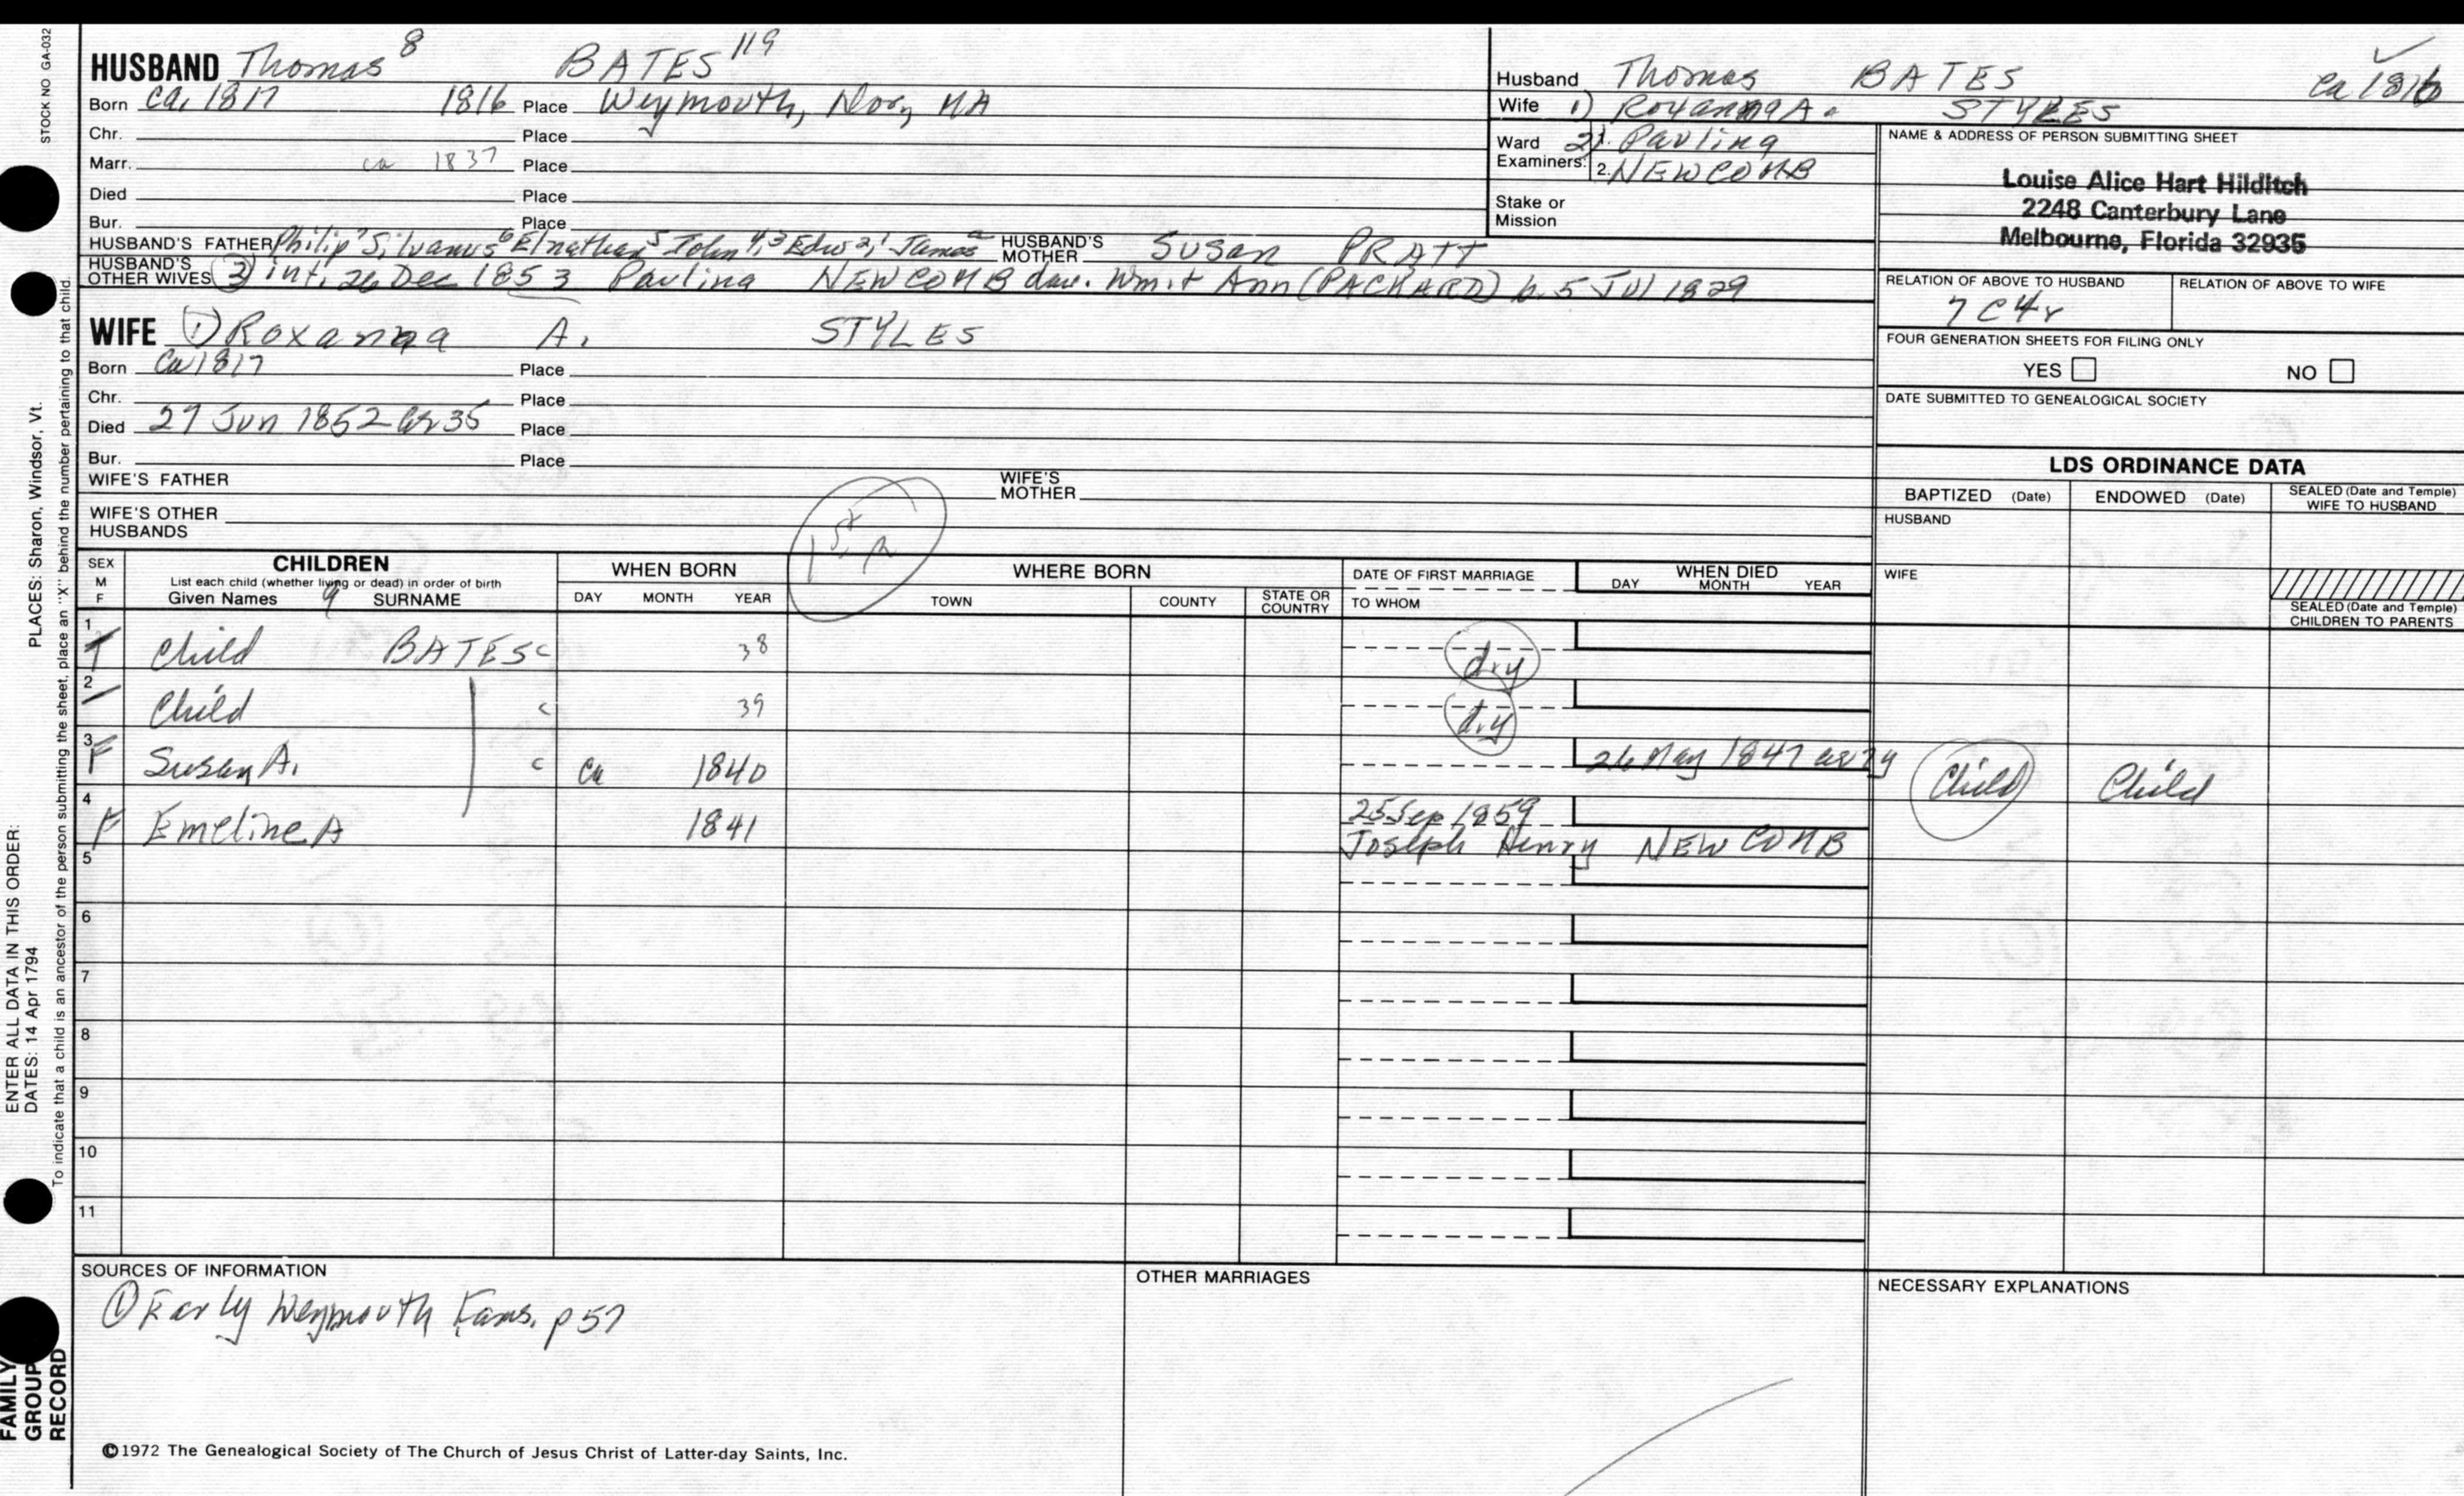 STOCK NO GA-032
HUSBAND Thomas 8 BATES 119
Born ca. 1817 1816 Place Weymouth, Nor, MA
Chr. Place
Marr. ca 1837 Place
Died Place
Bur. Place
HUSBAND'S FATHER Philip 7 Silvanus 6 Elnathan 5 John 4,3 Edw 2,1 James a HUSBAND'S MOTHER SUSAN PRATT
HUSBAND'S OTHER WIVES 2) int. 26 Dec 1853 Pauling NEWCOMB dau. Wm. + Ann (PACKARD) b. 5 Jul 1829
WIFE 1) Roxanna A. STYLES
Born Ca 1817 Place
Chr. Place
Died 27 Jun 1852 ae 35 Place
Bur. Place
WIFE'S FATHER WIFE'S MOTHER
WIFE'S OTHER HUSBANDS
Husband Thomas BATES ca 1816
Wife 1) Roxanna A. STYLES
Ward 2) Pauling
Examiners: 1. 2. NEWCOMB
Stake or Mission
NAME & ADDRESS OF PERSON SUBMITTING SHEET
Louise Alice Hart Hilditch
2248 Canterbury Lane
Melbourne, Florida 32935
RELATION OF ABOVE TO HUSBAND RELATION OF ABOVE TO WIFE
7C4r
FOUR GENERATION SHEETS FOR FILING ONLY
YES NO
DATE SUBMITTED TO GENEALOGICAL SOCIETY
LDS ORDINANCE DATA
BAPTIZED (Date) ENDOWED (Date) SEALED (Date and Temple) WIFE TO HUSBAND
HUSBAND
WIFE
SEALED (Date and Temple) CHILDREN TO PARENTS
SEX M F
CHILDREN
List each child (whether living or dead) in order of birth
Given Names 9 SURNAME
WHEN BORN
DAY MONTH YEAR
WHERE BORN
TOWN COUNTY STATE OR COUNTRY
DATE OF FIRST MARRIAGE
TO WHOM
WHEN DIED
DAY MONTH YEAR
1 Child BATES c 38 d.y
2 Child c 39 d.y
3 F Susan A. c ca 1840 26 May 1847 ae 7y Child Child
4 F Emeline A 1841 25 Sep 1859
Joseph Henry NEWCOMB
5
6
7
8
9
10
11
SOURCES OF INFORMATION
① Early Weymouth Fams. p 57
OTHER MARRIAGES
NECESSARY EXPLANATIONS
©1972 The Genealogical Society of The Church of Jesus Christ of Latter-day Saints, Inc.
FAMILY
GROUP
RECORD
ENTER ALL DATA IN THIS ORDER:
DATES: 14 Apr 1794 PLACES: Sharon, Windsor, Vt.
To indicate that a child is an ancestor of the person submitting the sheet, place an "X" behind the number pertaining to that child.